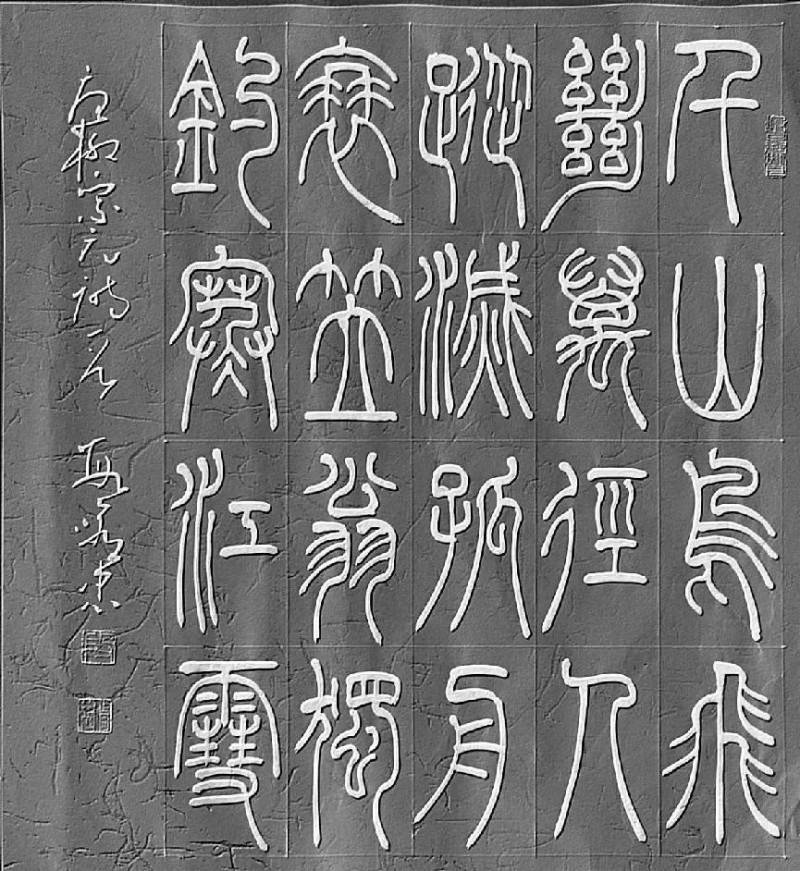 千山鳥飛
絕萬徑人
蹤滅孤舟
蓑笠翁獨
釣寒江雪
右柳宗元詩一首